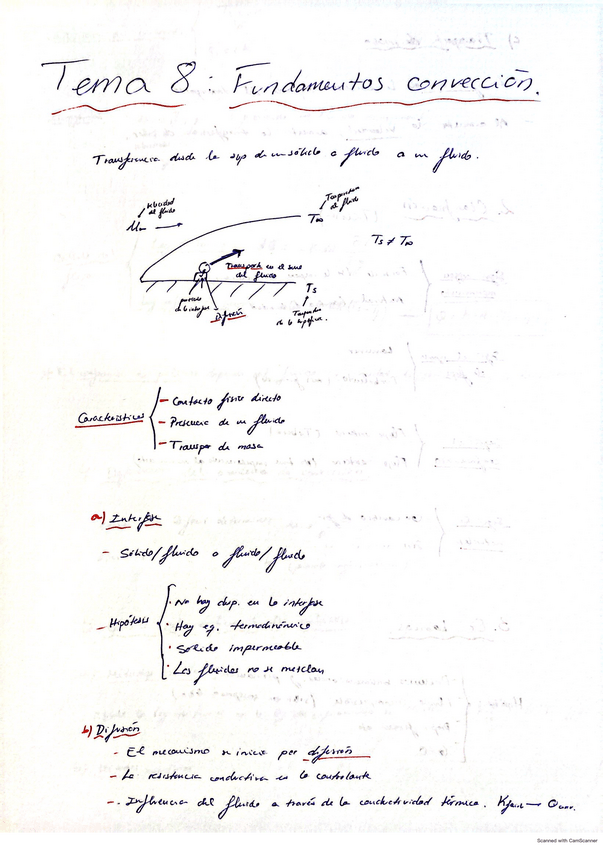 Tema 8: Fundamentos convección.
Transferencia desde la sup de un sólido o fluido a un fluido.
Velocidad del fluido
U∞
Temperatura del fluido
T∞
Ts ≠ T∞
Transporte en el seno del fluido
Ts
Difusión
Temperatura de la superficie.
Características
- Contacto físico directo
- Presencia de un fluido
- Transpor de masa
a) Interfase
- Sólido/fluido o fluido/fluido
- Hipótesis
· No hay disp. en la interfase
· Hay eq. termodinámico
· Sólido impermeable
· Los fluidos no se mezclan
b) Difusión
- El mecanismo se inicia por difusión
- La resistencia conductiva es la controlante
- Influencia del fluido a través de la conductividad térmica.
Scanned with CamScanner